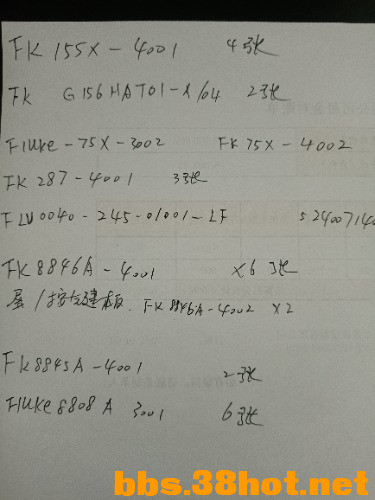 FK 155X - 4001 4张
FK G156HAT01-1/04 2张
Fluke - 75X - 3002 FK 75X - 4002
FK 287 - 4001 3张
FLU0040 - 245 - 01001 - LF 52400714
FK 8846A - 4001 X6张
FK 8846A - 4002 X2
FK 8845A - 4001 2张
Fluke 8808A 3001 6张
bbs.38hot.net